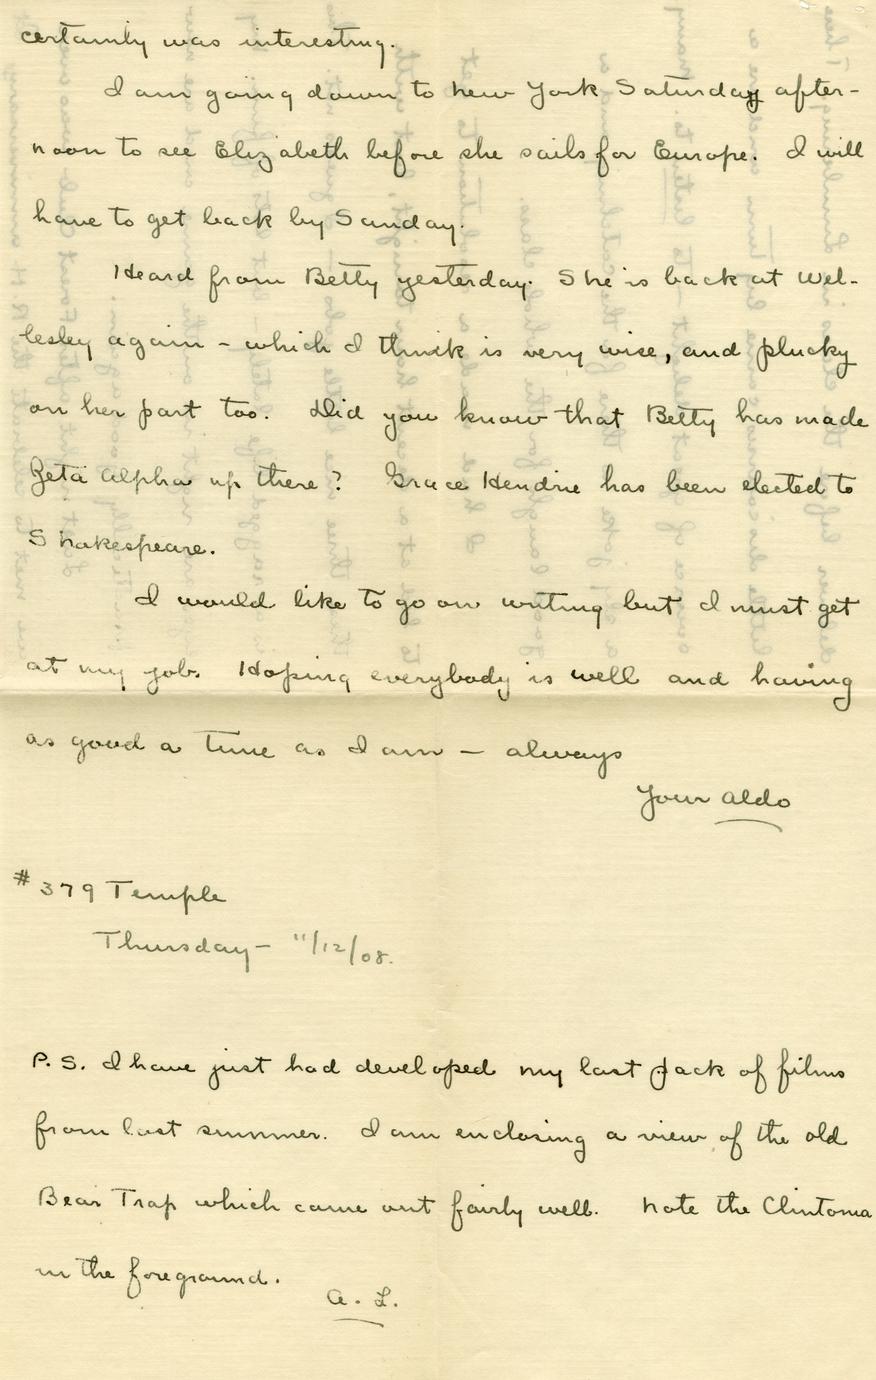 certainly was interesting.
I am going down to New York Saturday after-
noon to see Elizabeth before she sails for Europe. I will
have to get back by Sunday.
Heard from Betty yesterday. She is back at Wel-
lesley again – which I think is very wise, and plucky
on her part too. Did you know that Betty has made
Zeta Alpha up there? Grace Hendrie has been elected to
Shakespeare.
I would like to go on writing but I must get
at my job. Hoping everybody is well and having
as good a time as I am – always
Your Aldo
#379 Temple
Thursday – 11/12/08.
P.S. I have just had developed my last pack of films
from last summer. I am enclosing a view of the old
Bear Trap which came out fairly well. Note the Clintonia
in the foreground.
A. L.